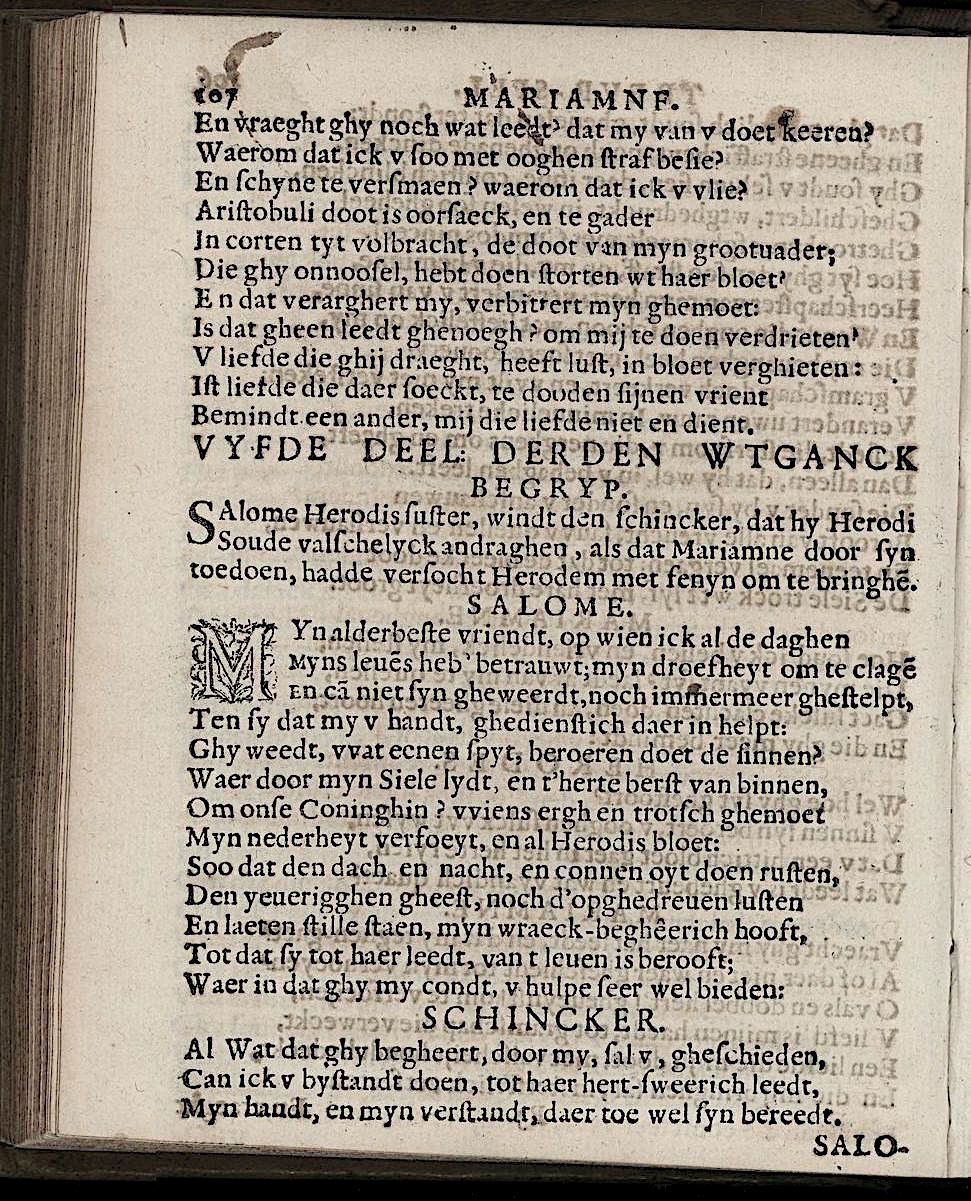 107
MARIAMNE.
En vraeght ghy noch wat leedt' dat my van v doet keeren?
Waerom dat ick v soo met ooghen straf besie?
En schyne te versmaen? waerom dat ick v vlie?
Aristobuli doot is oorsaeck, en te gader
In corten tyt volbracht, de doot van myn grootuader;
Die ghy onnoosel, hebt doen storten wt haer bloet'
En dat verarghert my, verbittert myn ghemoet:
Is dat gheen leedt ghenoegh? om mij te doen verdrieten'
V liefde die ghij draeght, heeft lust, in bloet verghieten:
Ist liefde die daer soeckt, te dooden sijnen vrient
Bemindt een ander, mij die liefde niet en dient.
VYFDE DEEL: DERDEN WTGANCK
BEGRYP.
SAlome Herodis suster, windt den schincker, dat hy Herodi
Soude valschelyck andraghen, als dat Mariamne door syn
toedoen, hadde versocht Herodem met fenyn om te bringhẽ.
SALOME.
MYn alderbeste vriendt, op wien ick al de daghen
Myns leuẽs heb' betrauwt; myn droefheyt om te clagẽ
En cã niet syn gheweerdt, noch immermeer ghestelpt,
Ten sy dat my v handt, ghedienstich daer in helpt:
Ghy weedt, vvat eenen spyt, beroeren doet de sinnen?
Waer door myn Siele lydt, en t'herte berst van binnen,
Om onse Coninghin? vviens ergh en trotsch ghemoet
Myn nederheyt verfoeyt, en al Herodis bloet:
Soo dat den dach en nacht, en connen oyt doen rusten,
Den yeuerigghen gheest, noch d'opghedreuen lusten
En laeten stille staen, myn wraeck-beghêerich hooft,
Tot dat sy tot haer leedt, van t leuen is berooft;
Waer in dat ghy my condt, v hulpe seer wel bieden:
SCHINCKER.
Al Wat dat ghy begheert, door my, sal v, gheschieden,
Can ick v bystandt doen, tot haer hert-sweerich leedt,
Myn handt, en myn verstandt, daer toe wel syn bereedt.
SALO-